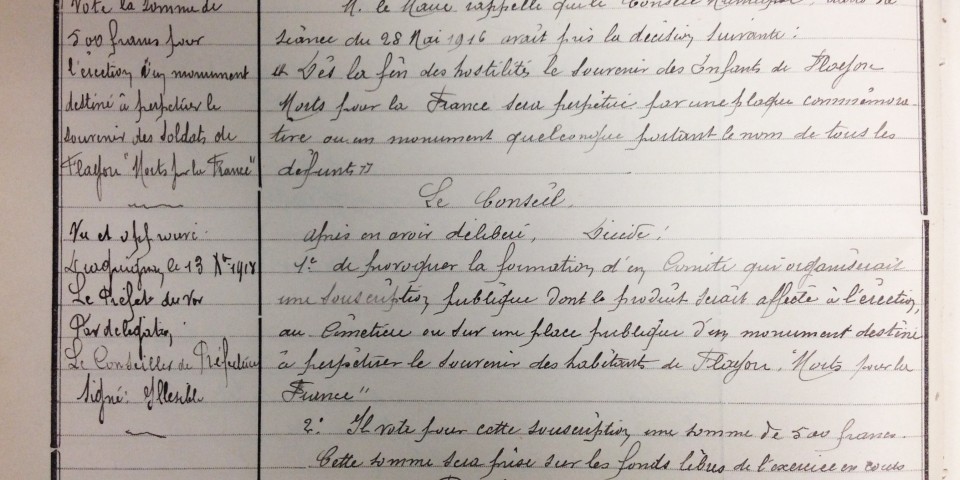 Vote la somme de
500 francs pour
l'érection d'un monument
destiné à perpétuer le
souvenir des soldats de
Flayosc "Morts pr la France"
Vu et approuvé
Draguignan, le 13 Xbre 1918
Le Préfet du Var
Par délégation,
Le Conseiller de Préfecture
Signé: Illisible
M. le Maire rappelle que le Conseil Municipal, dans sa
séance du 28 Mai 1916 avait pris la décision suivante :
" Dès la fin des hostilités le souvenir des Enfants de Flayosc
Morts pour la France sera perpétué par une plaque commémora-
tive ou un monument quelconque portant le nom de tous les
défunts "
Le Conseil.
après en avoir délibéré, Décide :
1° de provoquer la formation d'un Comité qui organiserait
une souscription publique dont le produit serait affecté à l'érection,
au Cimetière ou sur une place publique d'un monument destiné
à perpétuer le souvenir des habitants de Flayosc "Morts pour la
France"
2° Il vote pour cette souscription une somme de 500 francs.
Cette somme sera prise sur les fonds libres de l'exercice en cours